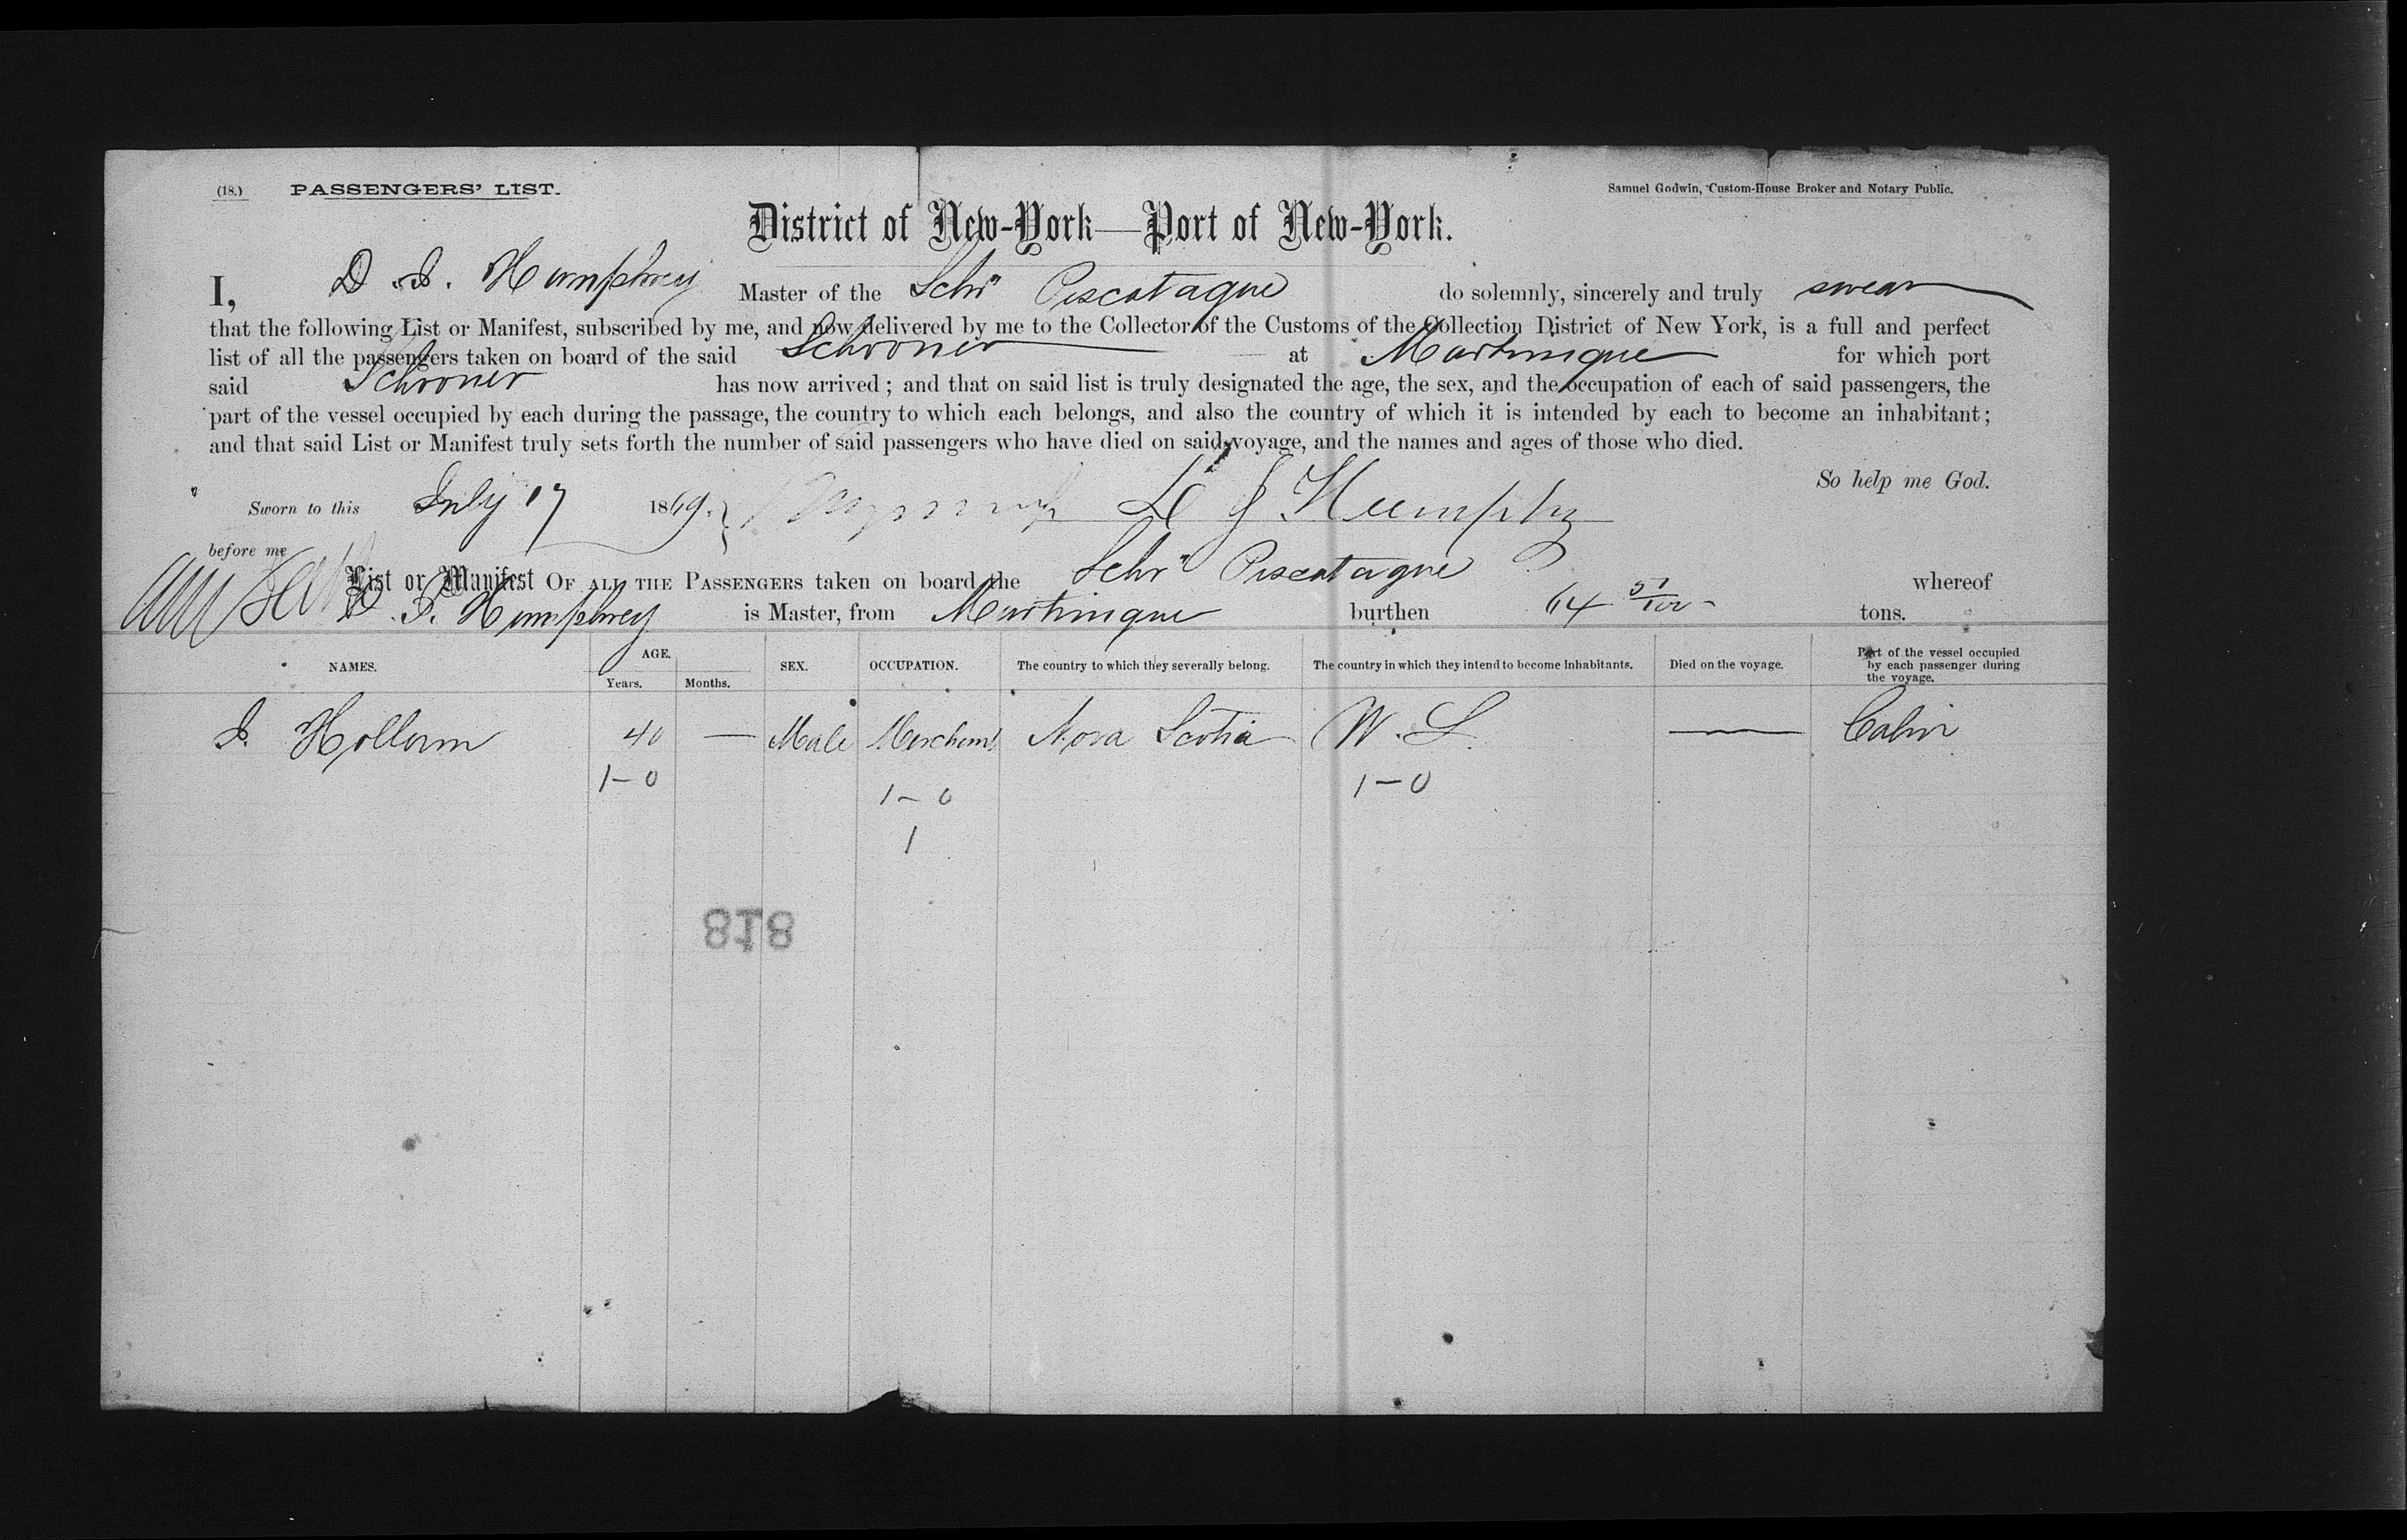 (18.) PASSENGERS' LIST.
Samuel Godwin, Custom-House Broker and Notary Public.
District of New-York—Port of New-York.
I, D. I. Humphrey Master of the Schr Piscatague do solemnly, sincerely and truly swear
that the following List or Manifest, subscribed by me, and now delivered by me to the Collector of the Customs of the Collection District of New York, is a full and perfect
list of all the passengers taken on board of the said Schooner at Martinique for which port
said Schooner has now arrived; and that on said list is truly designated the age, the sex, and the occupation of each of said passengers, the
part of the vessel occupied by each during the passage, the country to which each belongs, and also the country of which it is intended by each to become an inhabitant;
and that said List or Manifest truly sets forth the number of said passengers who have died on said voyage, and the names and ages of those who died.
So help me God.
Sworn to this July 17 1869. D J Humphry
before me
List or Manifest OF ALL THE PASSENGERS taken on board the Schr Piscatague whereof
D. I. Humphrey is Master, from Martinique burthen 64 51/100 tons.
NAMES. AGE. Years. Months. SEX. OCCUPATION. The country to which they severally belong. The country in which they intend to become inhabitants. Died on the voyage. Part of the vessel occupied by each passenger during the voyage.
40 — Male Merchant Nova Scotia — Cabin
1–0 1–0 1–0
1
818